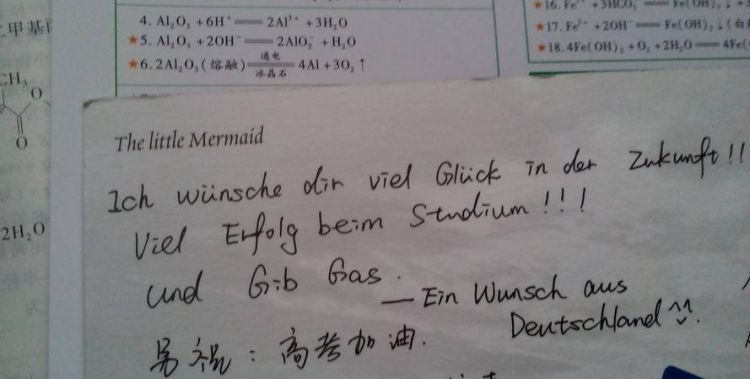 4. Al₂O₃ +6H⁺ ══ 2Al³⁺ +3H₂O
★5. Al₂O₃ + 2OH⁻ ══ 2AlO₂⁻ + H₂O
★6. 2Al₂O₃ (熔融) ══ 4Al +3O₂ ↑
通电
冰晶石
★16. Fe³⁺ +3HCO₃⁻ ══ Fe(OH)₃ ↓ +3
★17. Fe²⁺ +2OH⁻ ══ Fe(OH)₂ ↓ (白
★18. 4Fe(OH)₂ + O₂ +2H₂O ══ 4Fe(
甲基
CH₃
O
O
2H₂O
The little Mermaid
Ich wünsche dir viel Glück in der Zukunft!!
Viel Erfolg beim Studium!!!
und Gib Gas.
— Ein Wunsch aus
Deutschland ^^.
另祝：高考加油.